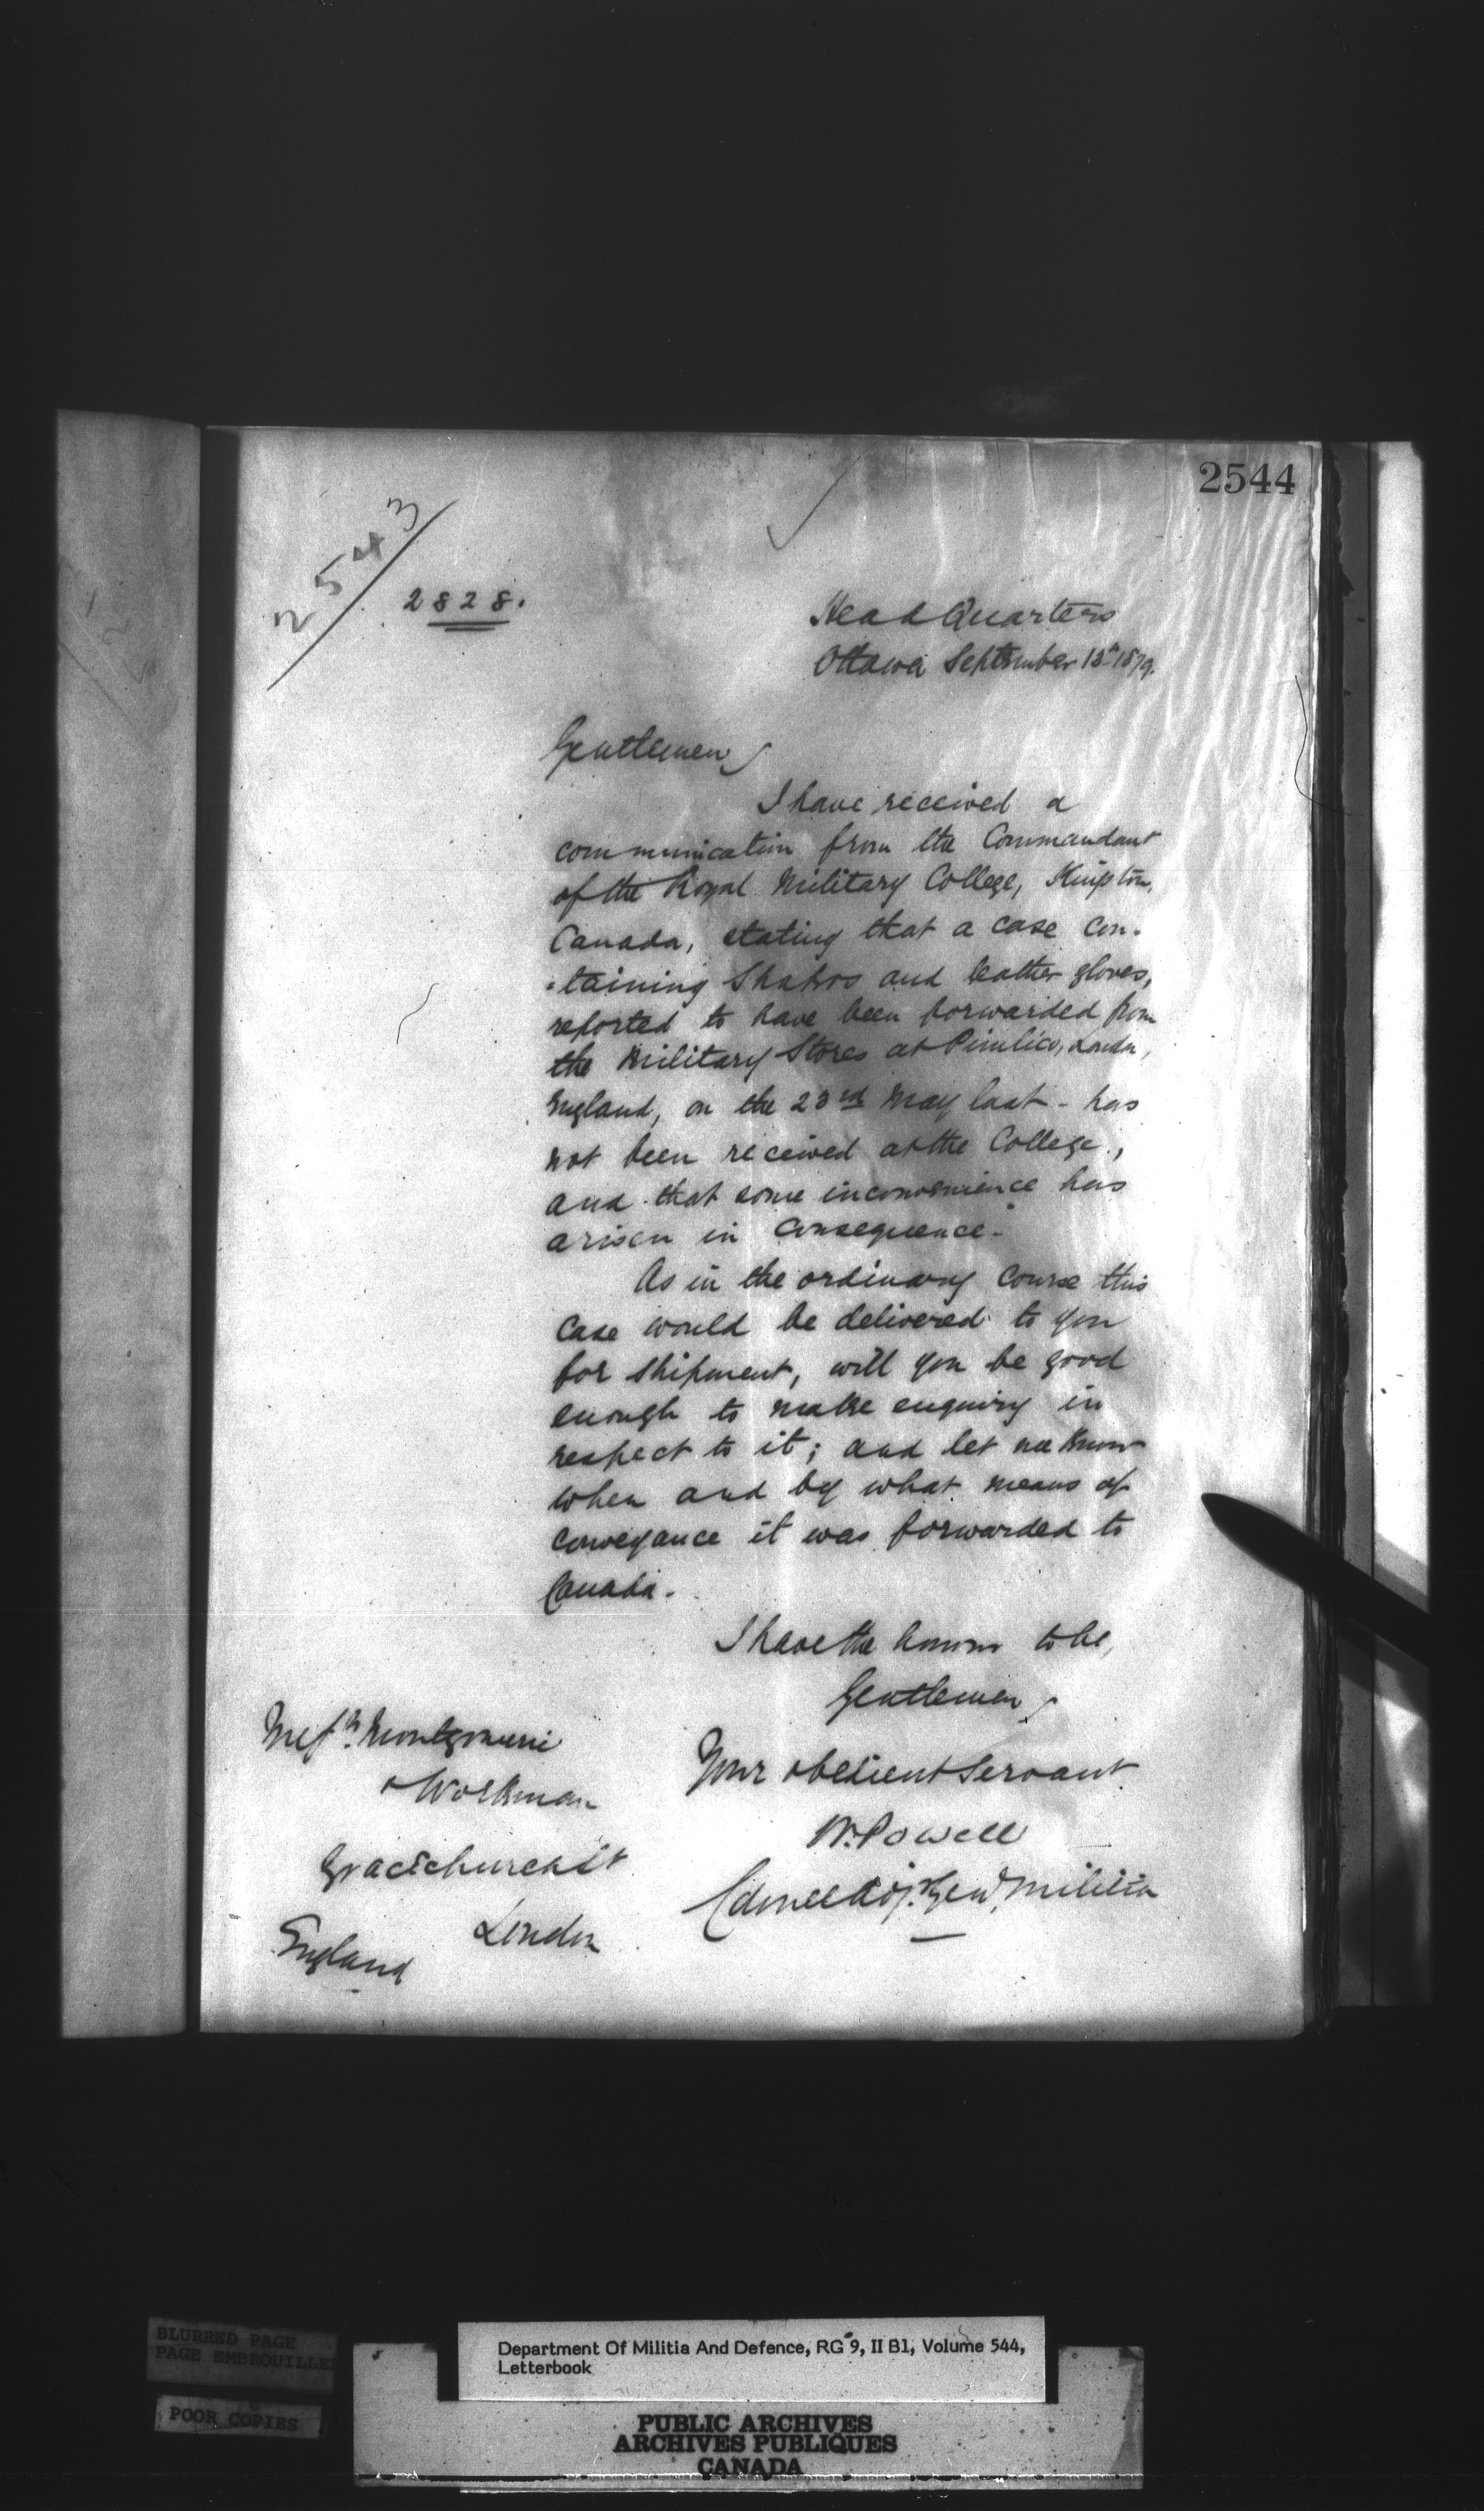 2544
2543
2828.
Head Quarters
Ottawa September 13th 1879.
Gentlemen,
I have received a
communication from the Commandant
of the Royal Military College, Kingston,
Canada, stating that a case con-
-taining Shakos and leather gloves,
reported to have been forwarded from
the Military Stores at Pimlico, London,
England, on the 23rd May last - has
not been received at the College,
and that some inconvenience has
arisen in consequence.
As in the ordinary course this
case would be delivered to you
for shipment, will you be good
enough to make enquiry in
respect to it; and let me know
when and by what means of
conveyance it was forwarded to
Canada.
I have the honour to be,
Gentlemen,
Your obedient Servant
W. Powell
Colonel Adjt. Genl. Militia
Messrs. Montgomerie
& Workman
Gracechurch St
London
England
BLURRED PAGE
PAGE EMBROUILLE
POOR COPIES
Department Of Militia And Defence, RG 9, II B1, Volume 544,
Letterbook
PUBLIC ARCHIVES
ARCHIVES PUBLIQUES
CANADA